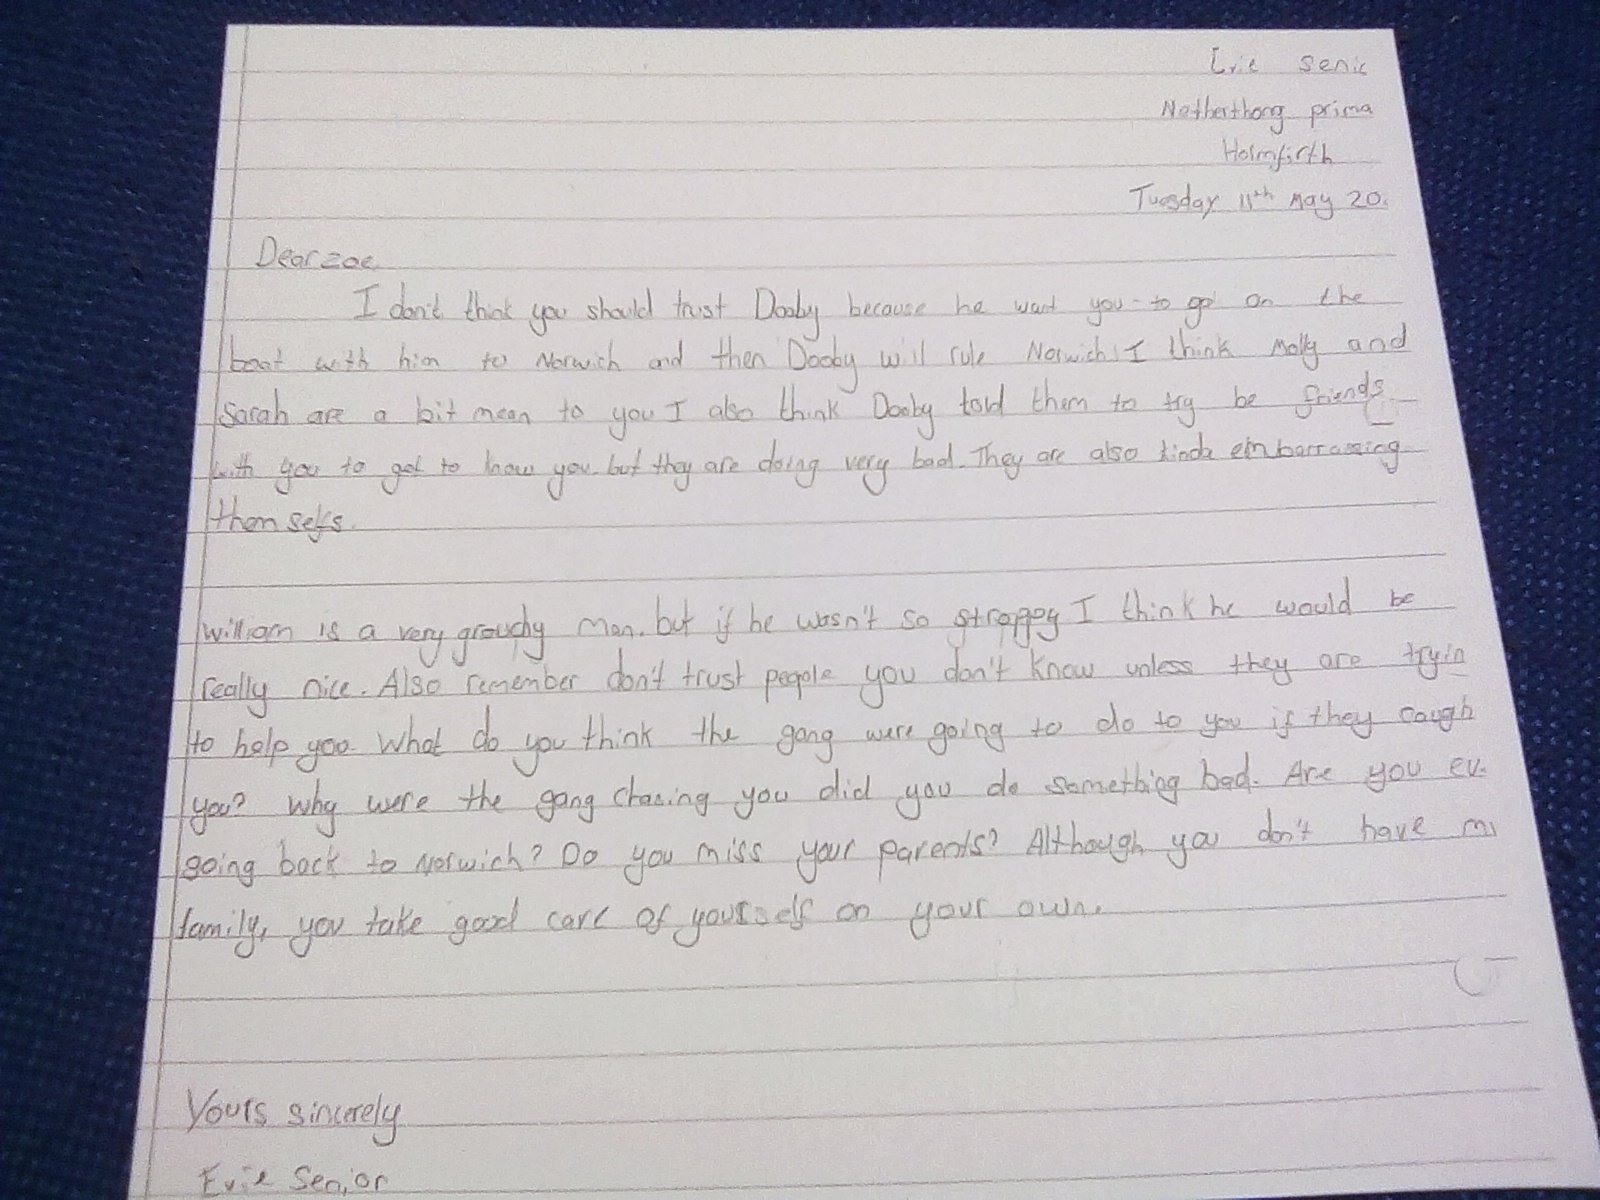 Evie Senio
Netherthong prima
Holmfirth
Tuesday 11th May 20
Dear zoe
I don't think you should trust Dooby because he want you to go on the
boat with him to Norwich and then Dooby will rule Norwich. I think Molly and
Sarah are a bit mean to you I also think Dooby told them to try be friends
with you to get to know you. but they are doing very bad. They are also kinda embarrassing
them selfs.
William is a very grouchy man. but if he wasn't so stroppy I think he would be
really nice. Also remember don't trust people you don't know unless they are tryin
to help you. What do you think the gang were going to do to you if they caugh
you? Why were the gang chasing you did you do something bad. Are you ev
going back to Norwich? Do you miss your parents? Although you don't have
family, you take good care of yourself on your own.
Yours sincerely
Evie Senior